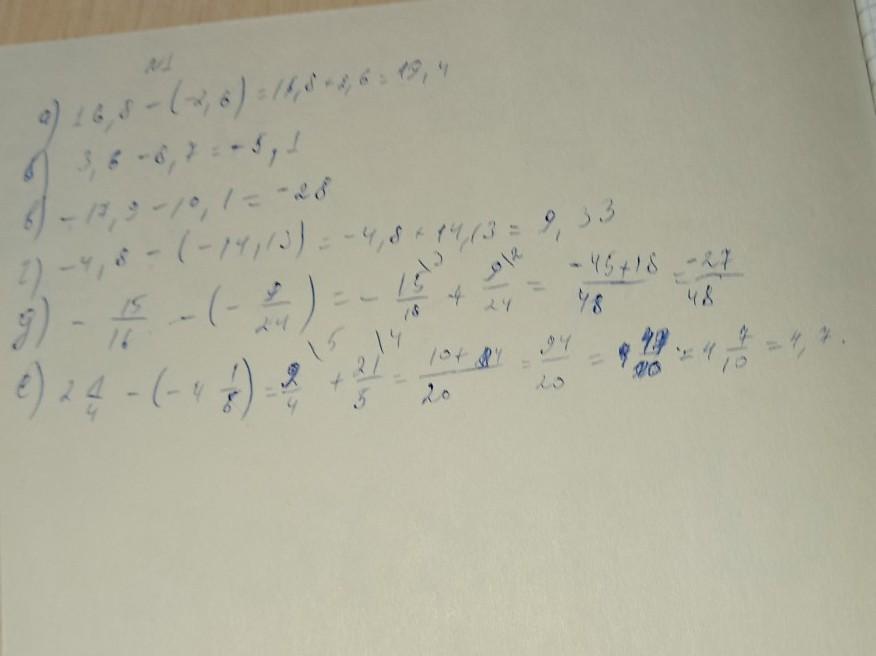 №1
а) 16,8 - (-2,6) = 16,8 + 2,6 = 19,4
б) 3,6 - 8,7 = -5,1
в) -17,9 - 10,1 = -28
г) -4,8 - (-14,13) = -4,8 + 14,13 = 9,33
д) - 15/16 - (- 9/24) = - 15/16 \3 + 9/24 \2 = -45+18/48 = -27/48
е) 2 1/4 - (-4 1/5) = 2/4 \5 + 21/5 \4 = 10+84/20 = 94/20 = 47/10 = 4 7/10 = 4,7.